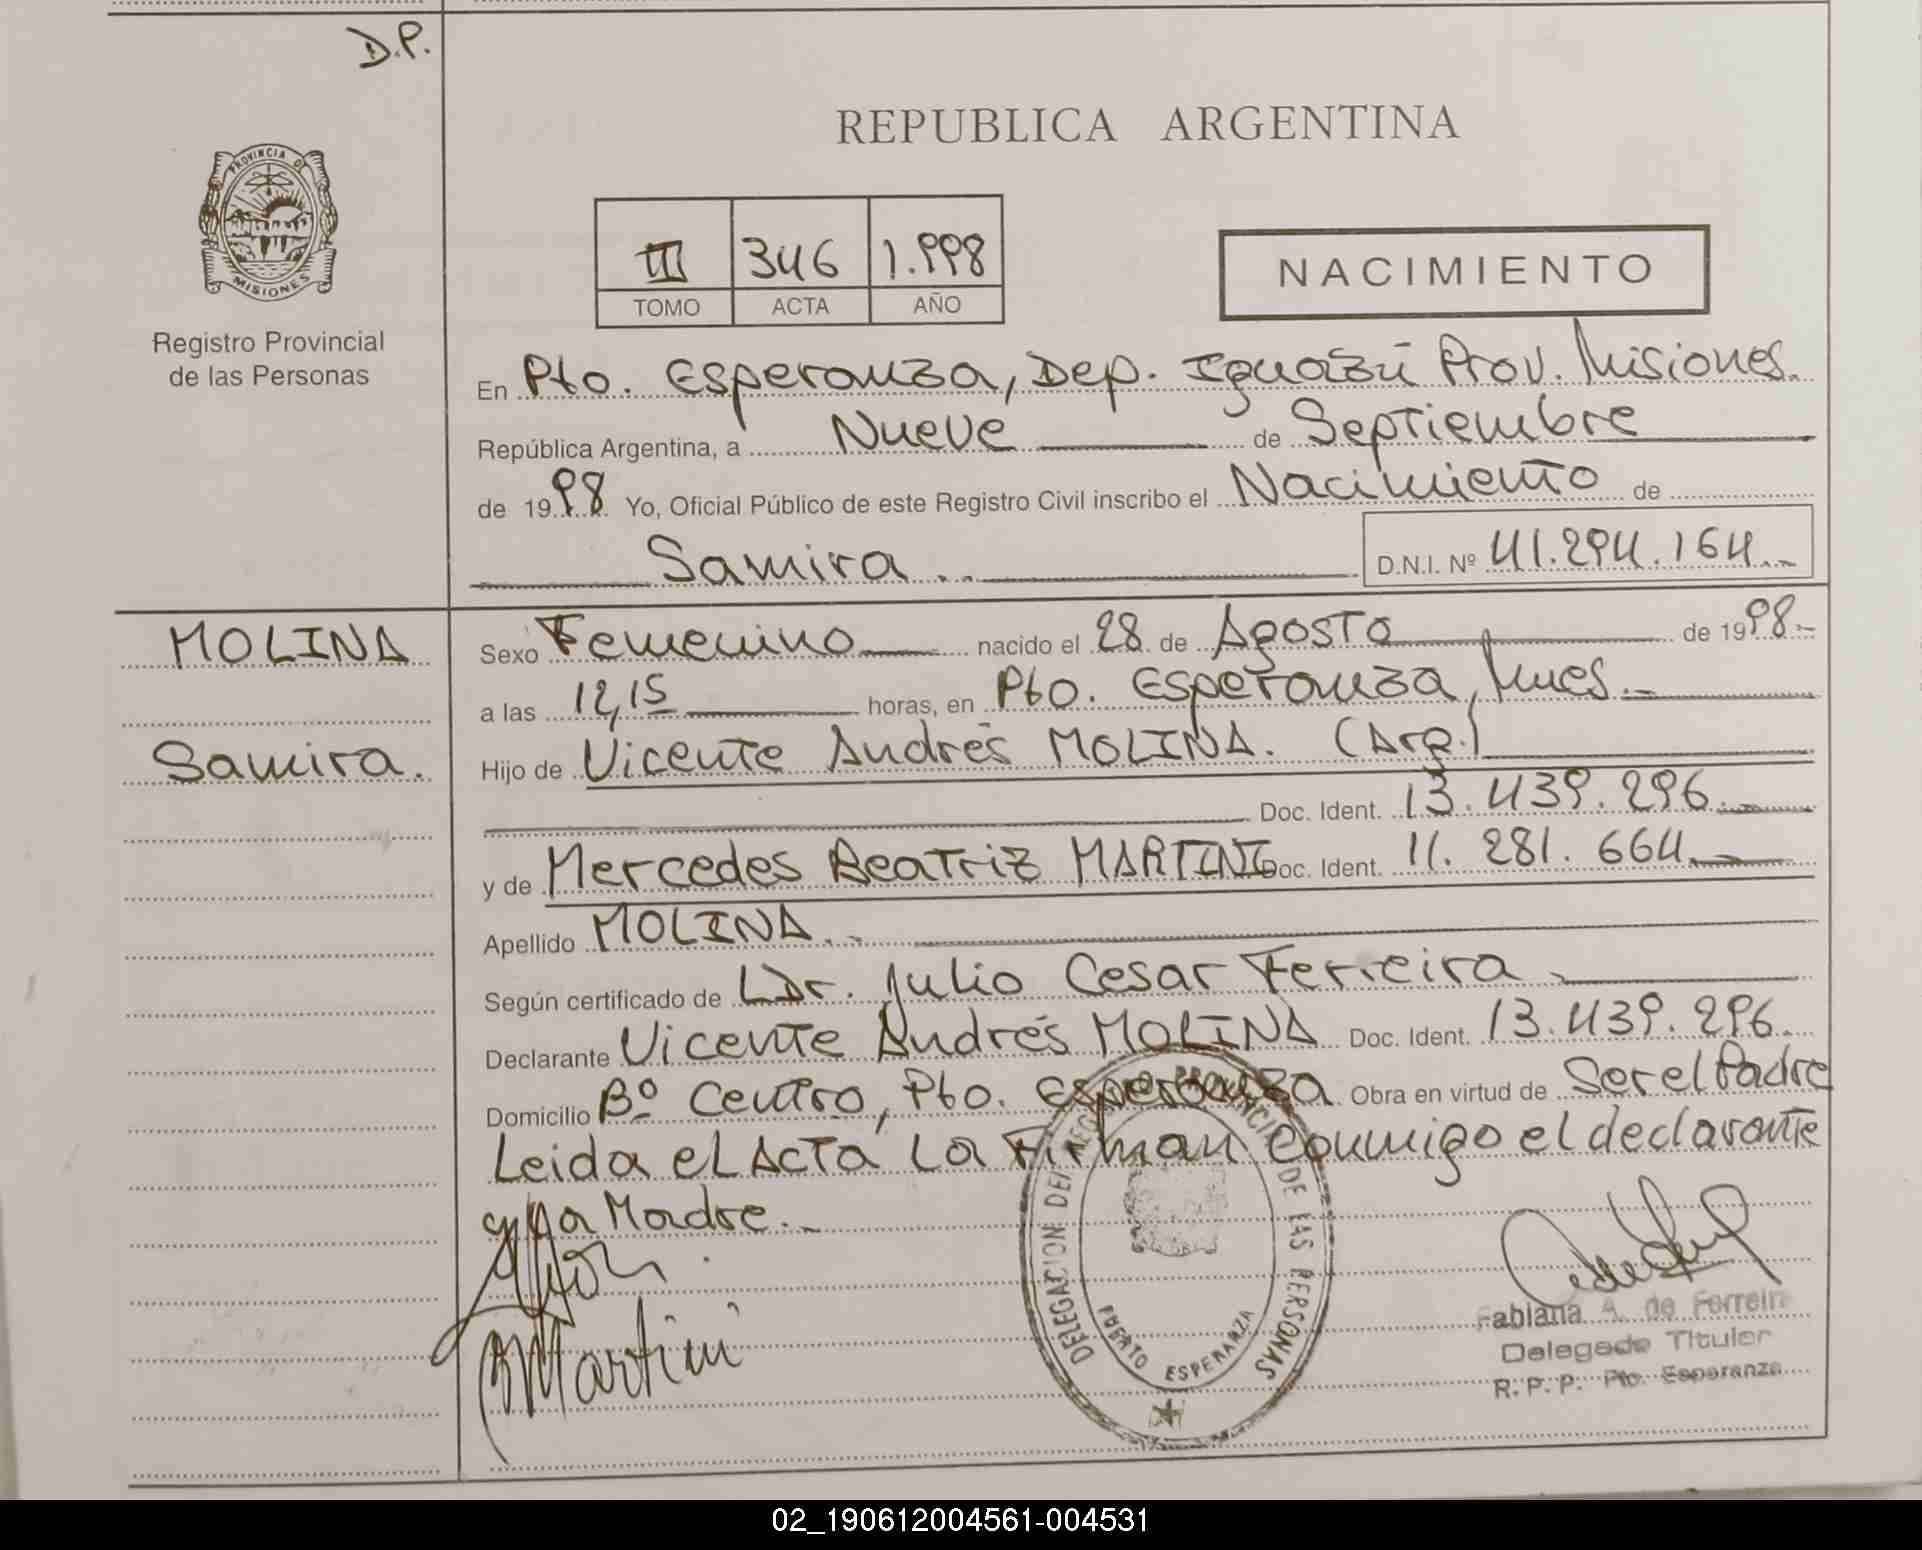 D.P.
REPUBLICA ARGENTINA
PROVINCIA DE
MISIONES
Registro Provincial
de las Personas
III 346 1.998
TOMO ACTA AÑO
NACIMIENTO
En Pto. Esperanza, Dep. Iguazú Prov. Misiones.
República Argentina, a Nueve de Septiembre
de 1998 Yo, Oficial Público de este Registro Civil inscribo el Nacimiento de
Samira. D.N.I. Nº 41.294.164
MOLINA
Samira.
Sexo Femenino nacido el 28 de Agosto de 1998
a las 12,15 horas, en Pto. Esperanza, Mnes.
Hijo de Vicente Andrés MOLINA. (Arg.)
Doc. Ident. 13.439.296
y de Mercedes Beatriz MARTINI Doc. Ident. 11.281.664
Apellido MOLINA.
Según certificado de Dr. Julio Cesar Ferreira
Declarante Vicente Andrés MOLINA Doc. Ident. 13.439.296
Domicilio Bº Centro, Pto. Esperanza Obra en virtud de Ser el Padre
Leida el Acta La Firman conmigo el declarante
y la Madre.
Martini
DELEGACION DEL REGISTRO PROVINCIAL DE LAS PERSONAS
PUERTO ESPERANZA
Fabiana A. de Ferreira
Delegado Titular
R.P.P. Pto. Esperanza
02_190612004561-004531